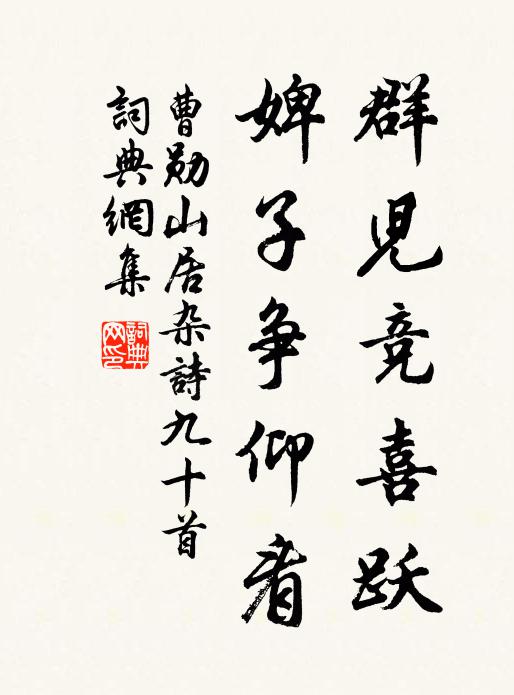 群児竞喜跃
婢子争仰看
曹勋山居杂詩九十首
詞典網集
詞典网印